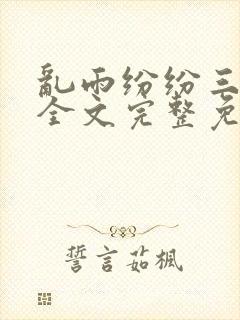 亂雨纷纷三
全文完整免
誓言茹楓